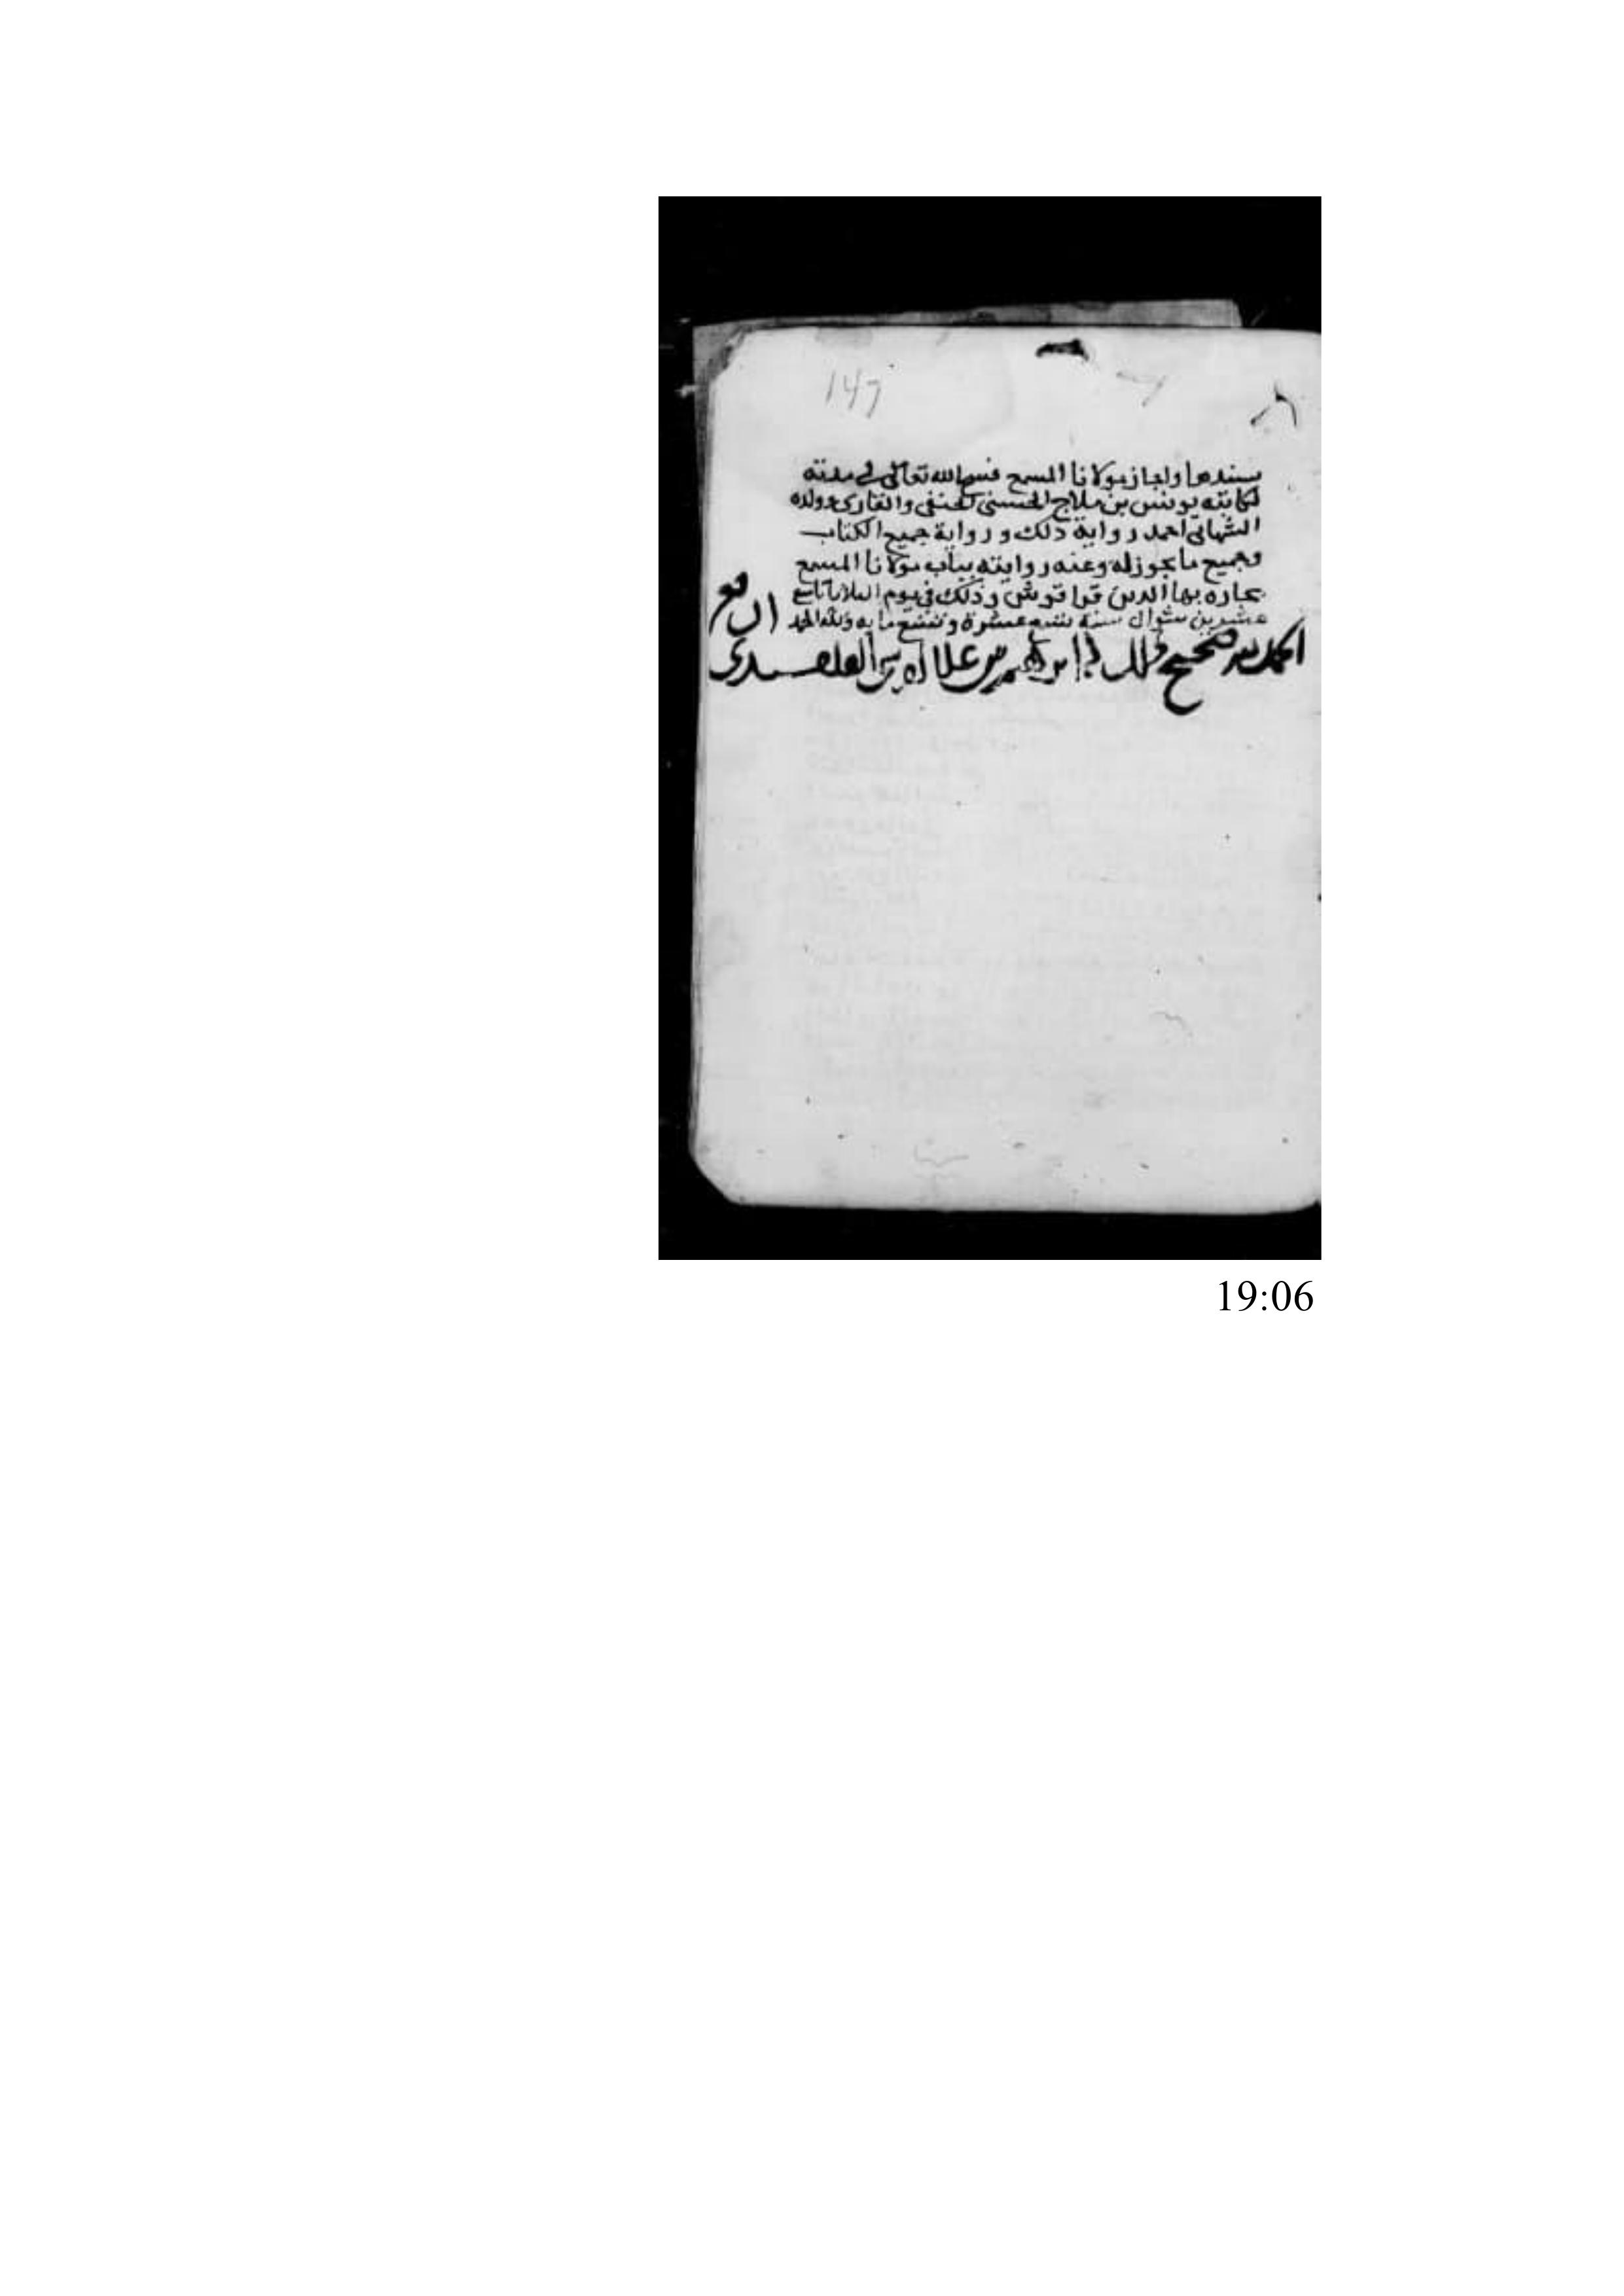 147
بسندها واجاز مولانا المسمع فسح الله تعالى في مدته
لكاتبه يونس بن ملاج الحسني الحنفي والقارئ وولده
الشهابي احمد رواية ذلك ورواية جميع الكتاب
وجميع ما يجوز له وعنه روايته بباب مولانا المسمع
بحاره بهاالدين قراقوش وذلك في يوم الثلاثا تاسع
عشرين شوال سنه عشرة وتسع مايه ولله الحمد
الحمد لله صحيح ذلك ابراهيم بن علا الدين القلقشندي
19:06